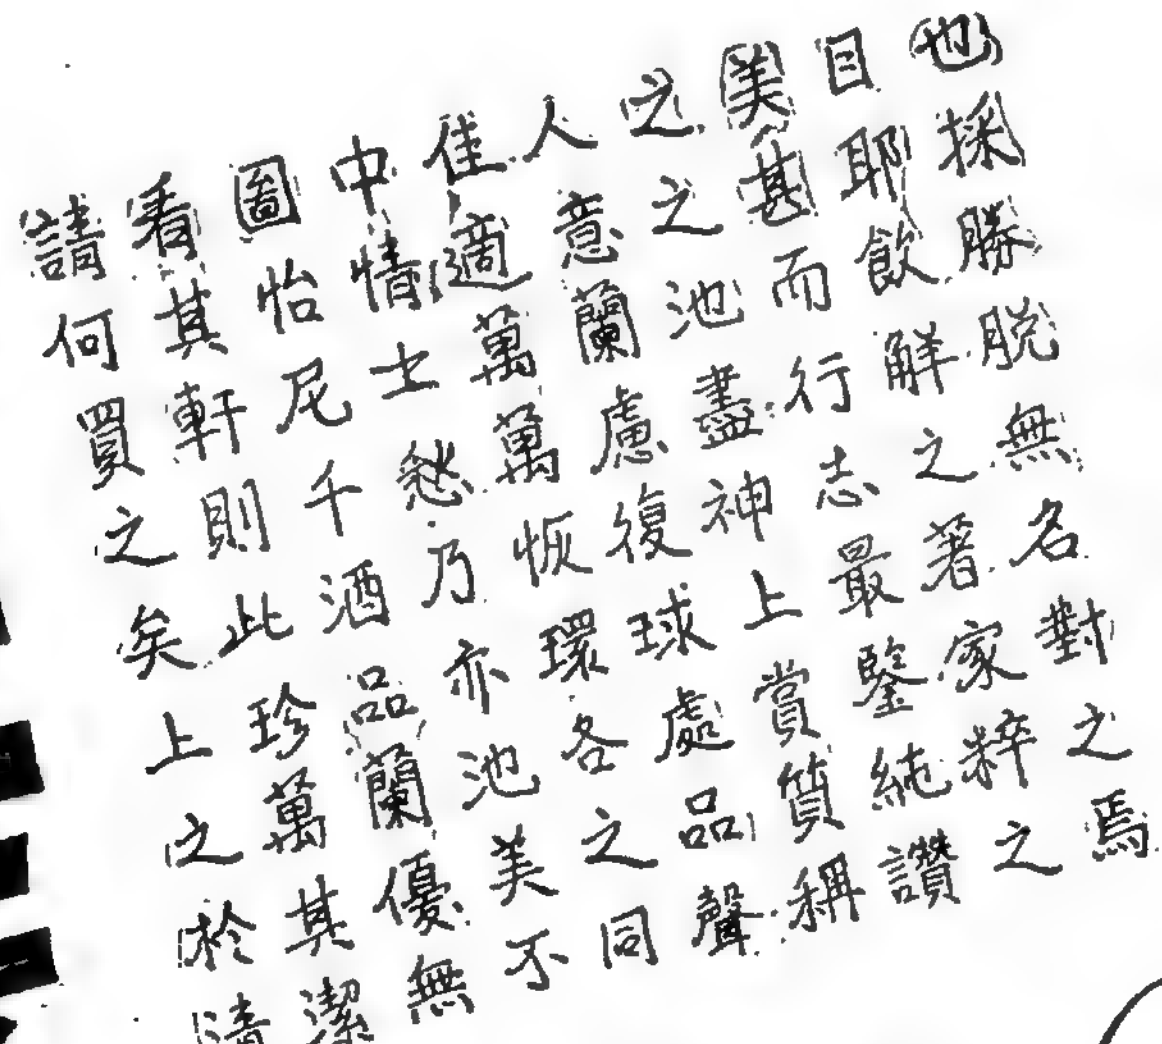 請看圖中佳人之美目也
何其怡情適意之甚耶採
買軒尼士萬蘭池而飲勝
之則千愁萬慮盡行解脫
矣此酒乃恢復神志之無
上珍品亦環球上最著名
之萬蘭池各處賞鑒家對
於其優美之品質純粹之
清潔無不同聲稱讚之焉